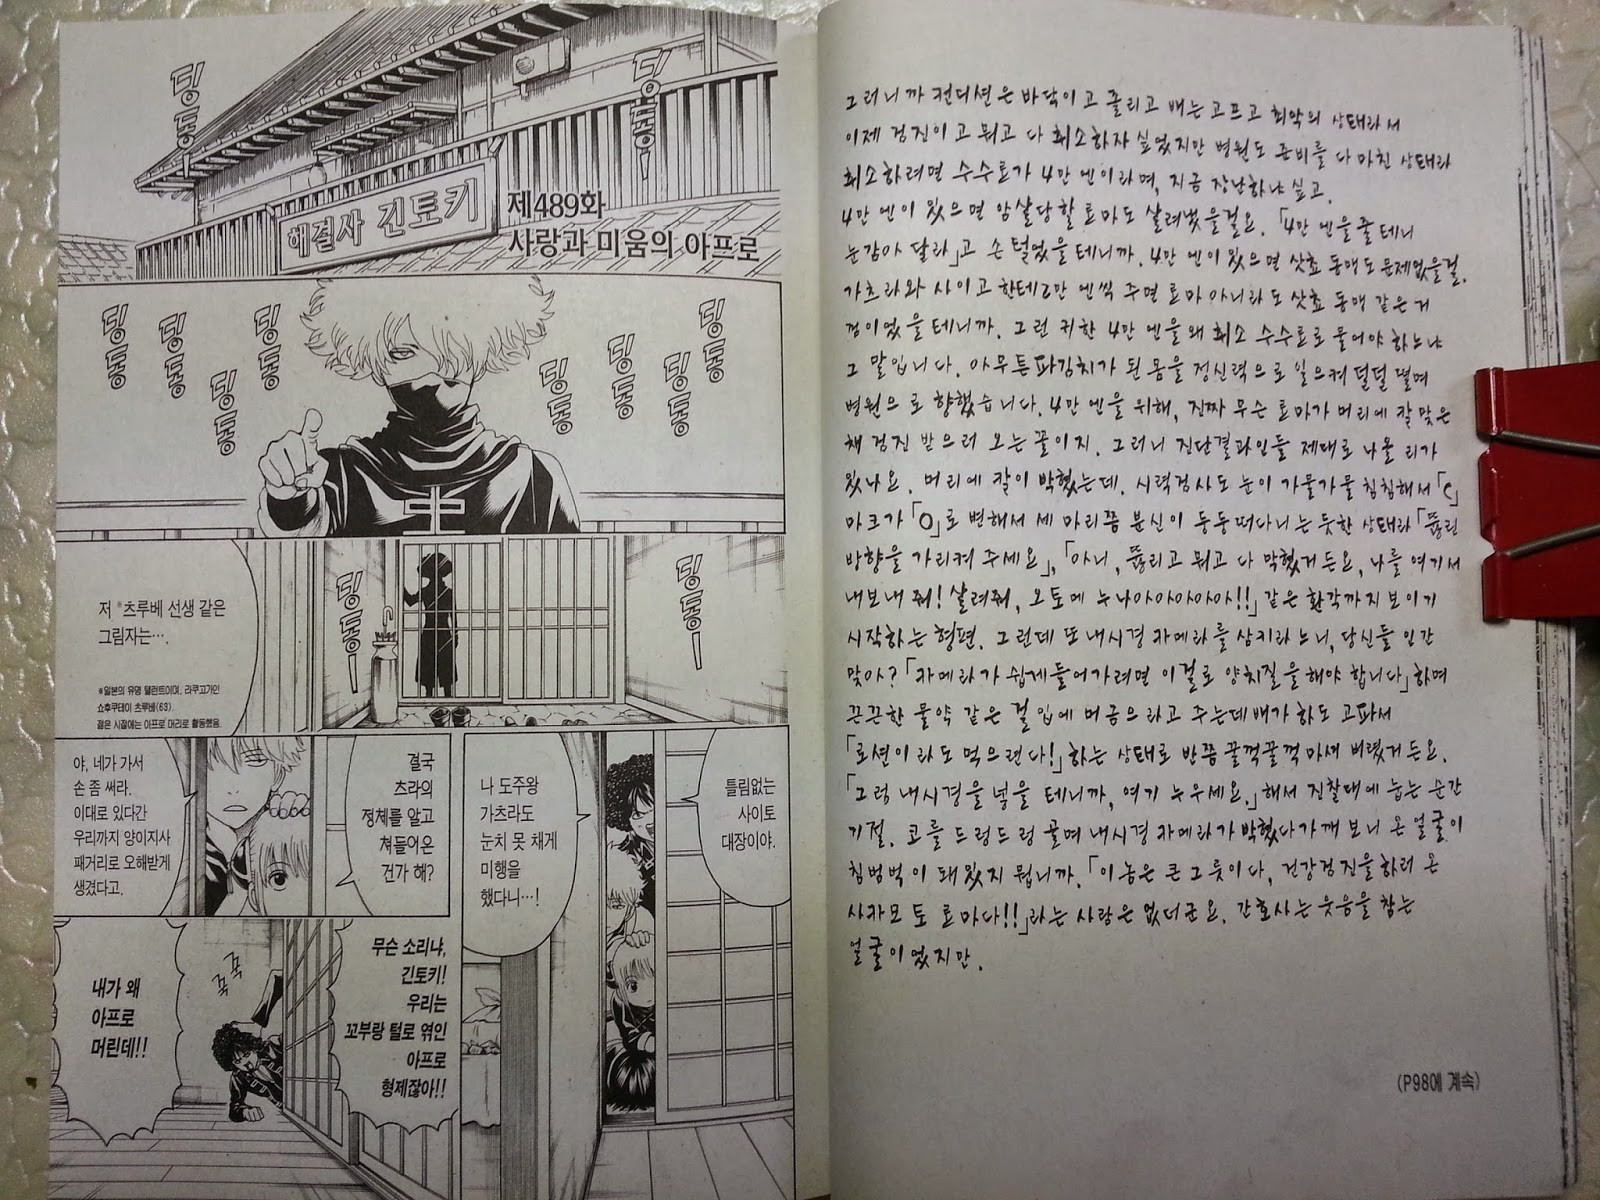 딩동-
딩동-
해결사 긴토키
제489화
사랑과 미움의 아프로
딩동
딩동
딩동
딩동
딩동
딩동
딩동
딩동
딩동-
딩동-
저 *츠루베 선생 같은
그림자는….
*일본의 유명 탤런트이며, 라쿠고가인
쇼후쿠테이 츠루베(63).
젊은 시절에는 아프로 머리로 활동했음.
틀림없는
사이토
대장이야.
나 도주왕
가츠라도
눈치 못 채게
미행을
했다니…!
결국
츠라의
정체를 알고
쳐들어온
건가 해?
야, 네가 가서
손 좀 써라.
이대로 있다간
우리까지 양이지사
패거리로 오해받게
생겼다고.
무슨 소리냐,
긴토키!
우리는
꼬부랑 털로 엮인
아프로
형제잖아!!
꾹
꾹
내가 왜
아프로
머린데!!
그러니까 컨디션은 바닥이고 졸리고 배는 고프고 최악의 상태라서
이제 검진이고 뭐고 다 취소하자 싶었지만 병원도 준비를 다 마친 상태라
취소하려면 수수료가 4만 엔이라며, 지금 장난하냐 싶고.
4만 엔이 있으면 암살당할 료마도 살려냈을걸요. 「4만 엔을 줄 테니
눈 감아 달라」고 손 털었을 테니까. 4만 엔이 있으면 삿쵸 동맹도 문제없을걸.
가츠라와 사이고한테 2만 엔씩 주면 료마 아니라도 삿쵸 동맹 같은 거
껌이었을 테니까. 그런 귀한 4만 엔을 왜 취소 수수료로 물어야 하느냐
그 말입니다. 아무튼 파김치가 된 몸을 정신력으로 일으켜 덜덜 떨며
병원으로 향했습니다. 4만 엔을 위해, 진짜 무슨 료마가 머리에 칼 맞은
채 검진 받으러 오는 꼴이지. 그러니 진단결과인들 제대로 나올 리가
있나요. 머리에 칼이 박혔는데. 시력검사도 눈이 가물가물 침침해서 「C」
마크가 「O」로 변해서 세 마리쯤 분신이 둥둥 떠다니는 듯한 상태라 「뚫린
방향을 가리켜 주세요」, 「아니, 뚫리고 뭐고 다 막혔거든요, 나를 여기서
내보내 줘! 살려줘, 오토메 누나아아아아아!!」 같은 환각까지 보이기
시작하는 형편. 그런데 또 내시경 카메라를 삼키라느니, 당신들 인간
맞아? 「카메라가 쉽게 들어가려면 이걸로 양치질을 해야 합니다」하며
끈끈한 물약 같은 걸 입에 머금으라고 주는데 배가 하도 고파서
「로션이라도 먹으련다!」하는 상태로 반쯤 꿀꺽꿀꺽 마셔 버렸거든요.
「그럼 내시경을 넣을 테니까, 여기 누우세요.」해서 진찰대에 눕는 순간
기절. 코를 드렁드렁 골며 내시경 카메라가 박혔다가 깨 보니 온 얼굴이
침범벅이 돼 있지 뭡니까. 「이놈은 큰 그릇이다, 건강검진을 하러 온
사카모토 료마다!!」라는 사람은 없더군요. 간호사는 웃음을 참는
얼굴이었지만.
(P98에 계속)